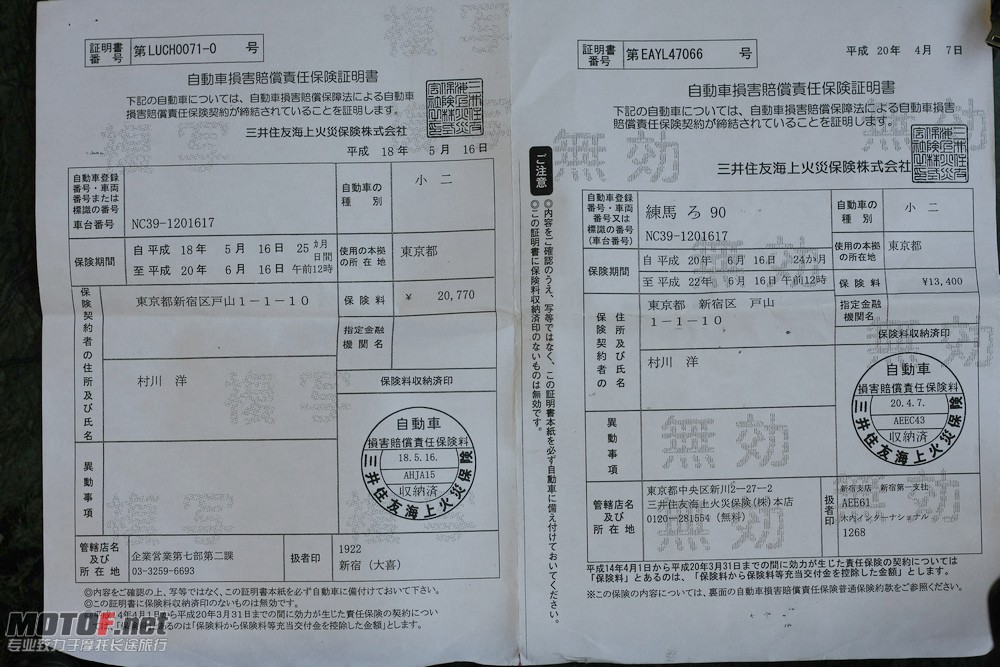 証明書番号 第LUCH0071-0 号
自動車損害賠償責任保険証明書
下記の自動車については、自動車損害賠償保障法による自動車
損害賠償責任保険契約が締結されていることを証明します。
三井住友海上火災保険株式会社
平成 18年 5月 16日
自動車登録
番号・車両
番号または
標識の番号
車台番号 NC39-1201617
自動車の
種別
小二
保険期間
自 平成 18年 5月 16日 25カ月 日間
至 平成 20年 6月 16日 午前12時
使用の本拠
の所在地
東京都
保険契約者の住所及び氏名
東京都新宿区戸山1-1-10
保険料 ¥ 20,770
指定金融
機関名
村川 洋
保険料収納済印
自動車
損害賠償責任保険料
18.5.16.
AHJA15
収納済
三井住友海上火災保険
異動事項
管轄店名
及び
所在地
企業営業第七部第二課
03-3259-6693
扱者印
1922
新宿(大喜)
◎内容をご確認の上、写等ではなく、この証明書本紙を必ず自動車に備付けておいて下さい。
◎この証明書に保険料収納済印のないものは無効です。
14年4月1日から平成20年3月31日までの間に効力が生じた責任保険の契約につい
「保険料」とあるのは、「保険料から保険料等充当交付金を控除した金額」とします。
MOTOF.net
专业致力于摩托长途旅行
ご注意
◎内容をご確認のうえ、写等ではなく、この証明書本紙を必ず自動車に備え付けておいてください。
◎この証明書に保険料収納済印のないものは無効です。
証明書番号 第EAYL47066 号
平成 20年 4月 7日
自動車損害賠償責任保険証明書
下記の自動車については、自動車損害賠償保障法による自動車損害
賠償責任保険契約が締結されていることを証明します。
無効
無効
三井住友海上火災保険株式会社
自動車登録
番号・車両
番号又は
標識の番号
(車台番号)
練馬 ろ 90
NC39-1201617
自動車の
種別
小二
保険期間
自 平成 20年 6月 16日 24か月
至 平成 22年 6月 16日 午前12時
無効
使用の本拠
の所在地
東京都
保険料 ¥13,400
保険契約者の住所及び氏名
東京都 新宿区 戸山
1-1-10
指定金融
機関名
無効
村川 洋
保険料収納済印
自動車
損害賠償責任保険料
20.4.7.
AEEC43
収納済
三井住友海上火災保険
異動事項
無効
管轄店名
及び
所在地
東京都中央区新川2-27-2
三井住友海上火災保険(株)本店
0120-281554(無料)
無効
扱者印
新宿支店 新宿第一支社
AEE61
木内インターナショナル
1268
無効
平成14年4月1日から平成20年3月31日までの間に効力が生じた責任保険の契約については、
「保険料」とあるのは、「保険料から保険料等充当交付金を控除した金額」とします。
※この保険の内容については、裏面の自動車損害賠償責任保険普通保険約款をご参照ください。